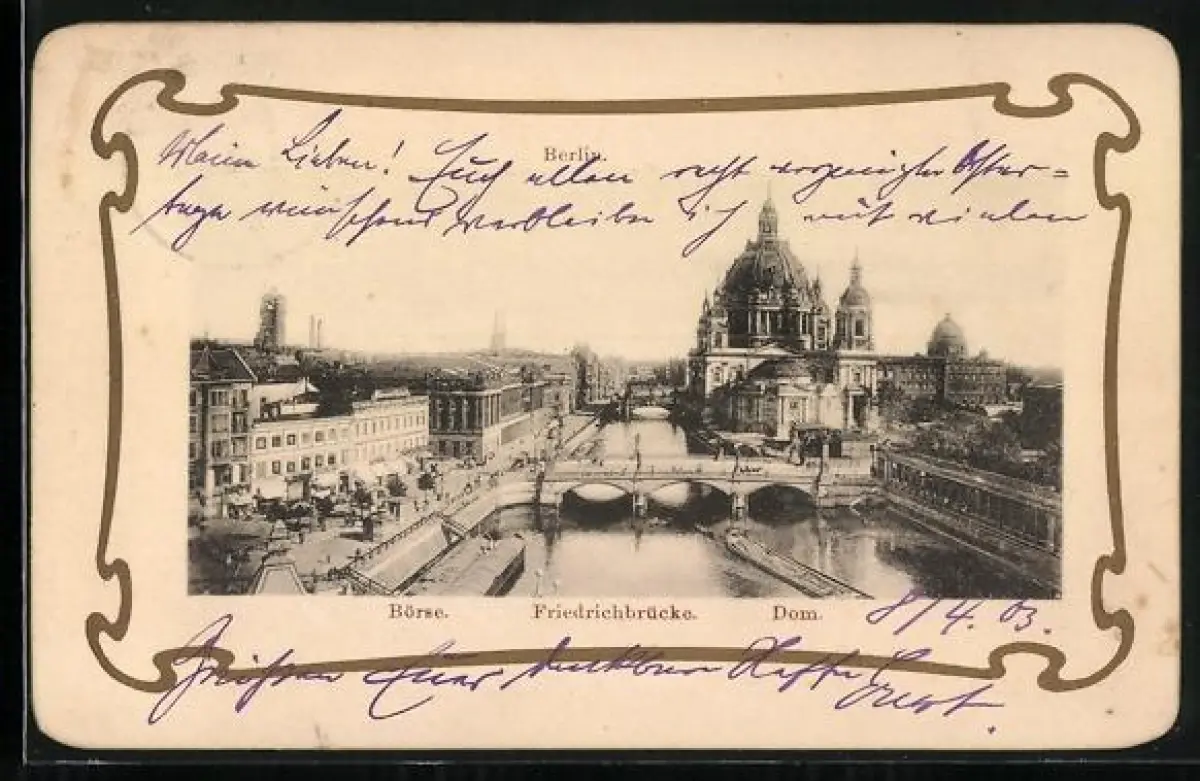 Berlin.
Meine Lieben! Euch allen recht vergnügte Oster=
tage wünschend verbleibe ich mit vielen
Börse. Friedrichbrücke. Dom. 8/4. 03.
Grüßen Euer dankbarer Neffe